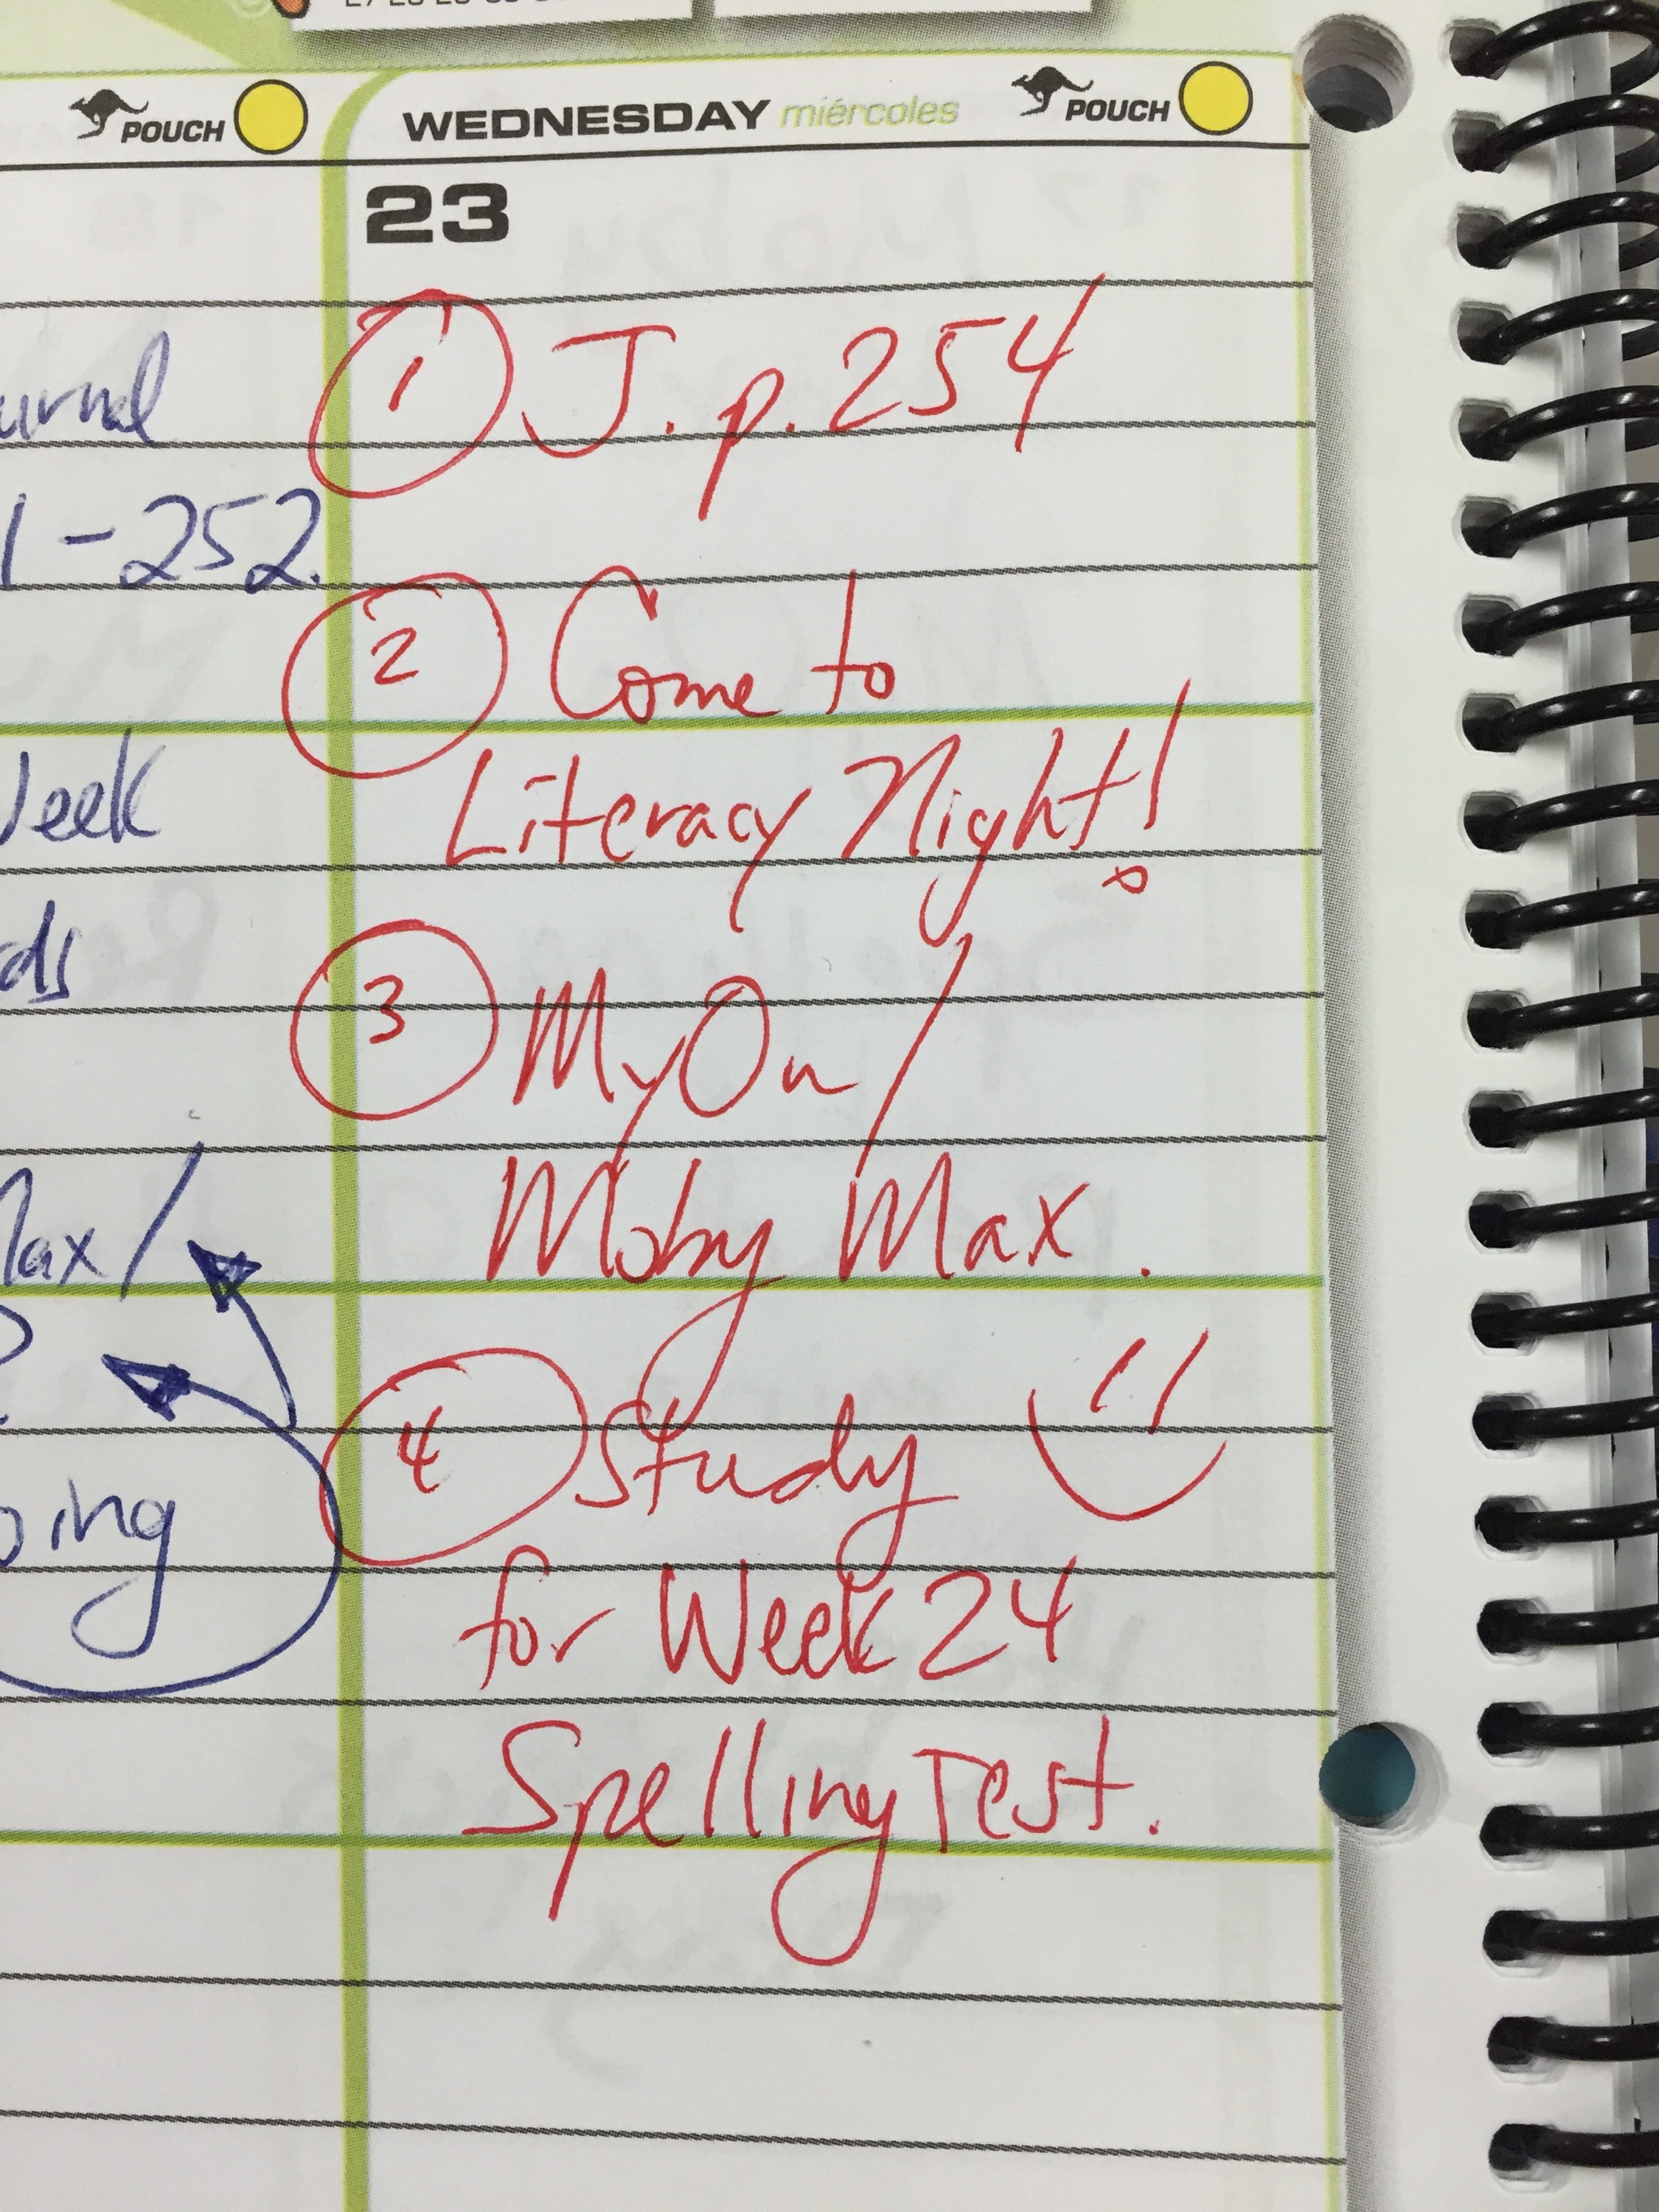 POUCH
WEDNESDAY miércoles POUCH
23
1 J. p. 254
2 Come to
Literacy Night!
3 MyOn/
Moby Max.
4 Study
for Week 24
Spelling Test.
urnal
1-252.
Week
rds
Max/
oing